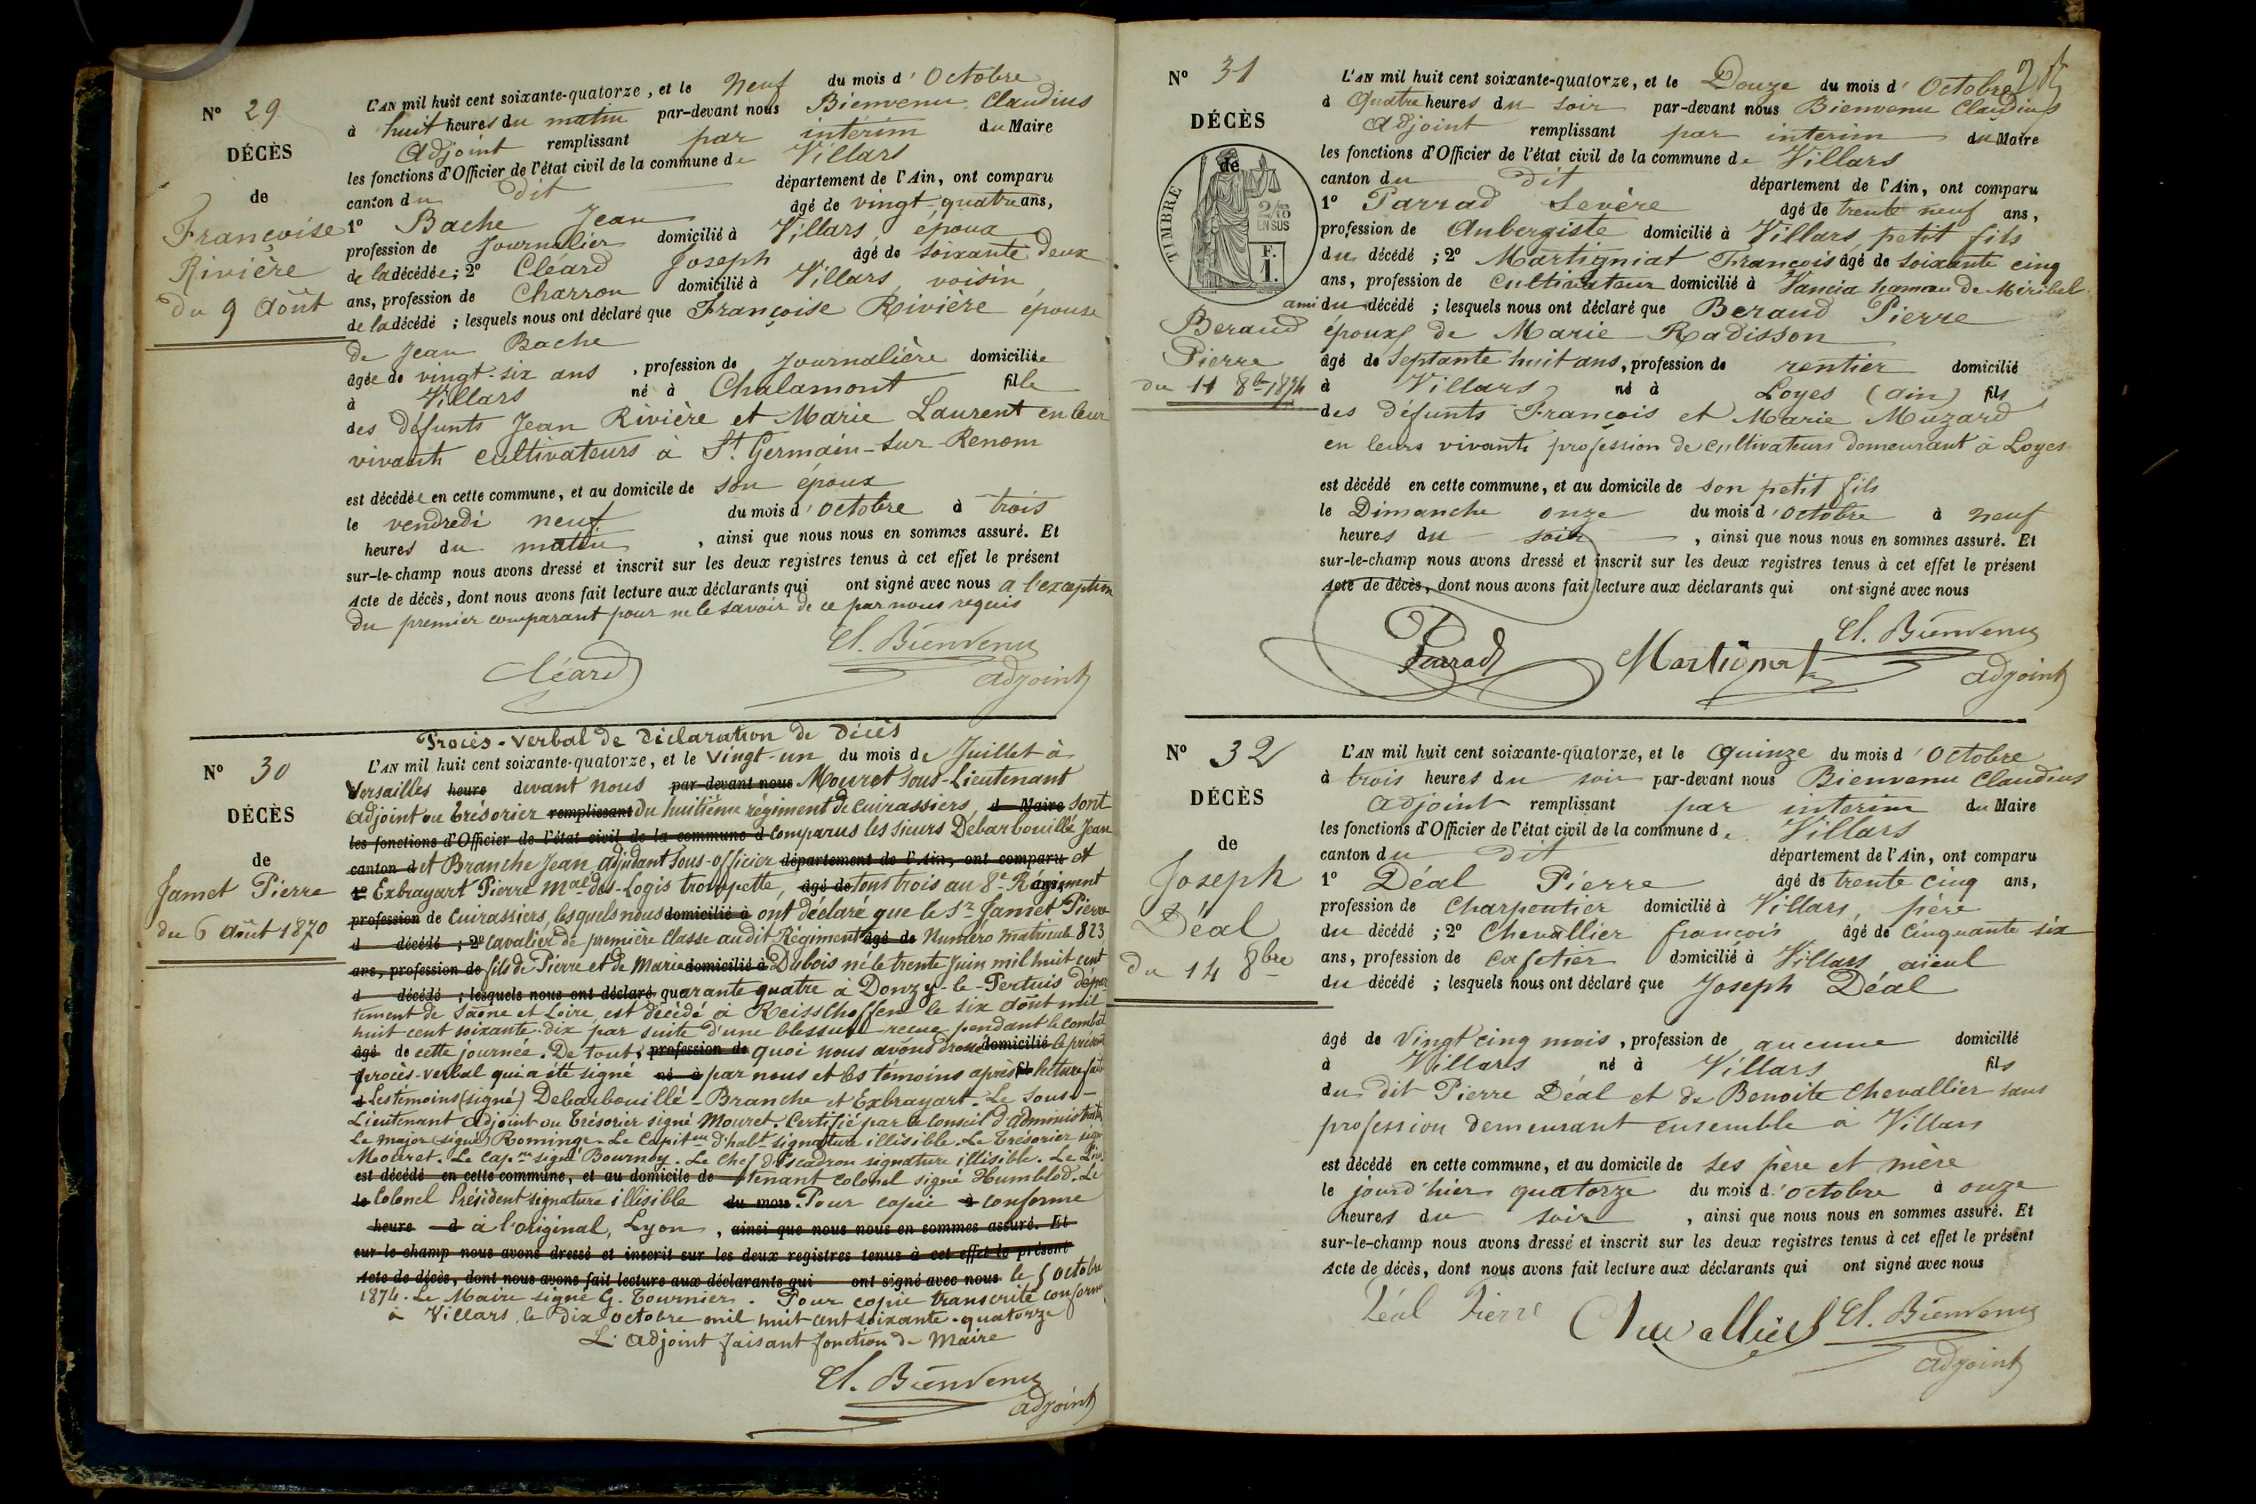 N° 29
DÉCÈS
de
Françoise
Rivière
du 9 Août
L'AN mil huit cent soixante-quatorze, et le Neuf du mois d'Octobre
à huit heures du matin par-devant nous Bienvenu Claudius
Adjoint remplissant par intérim du Maire
les fonctions d'Officier de l'état civil de la commune de Villars
canton du dit département de l'Ain, ont comparu
1° Bache Jean âgé de vingt-quatre ans,
profession de Journalier domicilié à Villars, époux
de la décédée ; 2° Cléard Joseph âgé de soixante deux
ans, profession de Charron domicilié à Villars, voisin
de la décédé ; lesquels nous ont déclaré que Françoise Rivière épouse
de Jean Bache
âgée de vingt-six ans, profession de Journalière domiciliée
à Villars né à Chalamont fille
des défunts Jean Rivière et Marie Laurent en leur
vivants cultivateurs à St Germain-sur-Renom
est décédée en cette commune, et au domicile de son époux
le vendredi neuf du mois d'octobre à trois
heures du matin, ainsi que nous nous en sommes assuré. Et
sur-le-champ nous avons dressé et inscrit sur les deux registres tenus à cet effet le présent
Acte de décès, dont nous avons fait lecture aux déclarants qui ont signé avec nous a l'exception
du premier comparant pour ne le savoir de ce par nous requis
Cléard Cl. Bienvenu
adjoint
N° 30
DÉCÈS
de
Jamet Pierre
du 6 août 1870
Procès-verbal de Déclaration de Décès
L'AN mil huit cent soixante-quatorze, et le vingt-un du mois de Juillet à
Versailles heure devant nous par-devant nous Mouret Sous-Lieutenant
Adjoint au trésorier remplissant du huitième régiment de cuirassiers, d Maire sont
les fonctions d'Officier de l'état civil de la commune d comparus les sieurs Debarbouillé Jean
canton d et Branche Jean adjudant sous-officier département de l'Ain, ont comparu et
1° Exbrayart Pierre Mal des-Logis trompette, âgé de tous trois au 8e Régiment
profession de de Cuirassiers, lesquels nous domicilié à ont déclaré que le Sr Jamet Pierre
d décédé ; 2° cavalier de première classe audit Régiment âgé de Numéro matricule 823
ans, profession de fils de Pierre et de Marie domicilié à Dubois né le trente Juin mil huit cent
d décédé ; lesquels nous ont déclaré quarante quatre à Donzy-le-Pertuis dépar
tement de Saône et Loire, est décédé à Reisschoffen le six août mil
huit cent soixante-dix par suite d'une blessure reçue pendant le combat
âgé de cette journée. De tout, profession de quoi nous avons dressé domicilié le présent
procès-verbal qui a été signé né à par nous et les témoins après fil lecture faite
à Les témoins (signé) Debarbouillé - Branche et Exbrayart. Le Sous-
Lieutenant adjoint au trésorier signé Mouret. Certifié par le conseil d'administration
Le major (signé) Rominge. Le Capitne d'halt signature illisible. Le trésorier signé
Mouret. Le capne signé Bournoy. Le Chef d'Escadron signature illisible. Le Lieu
est décédé en cette commune, et au domicile de tenant colonel signé Humblod. Le
le Colonel Président signature illisible du mois Pour copie à conforme
heure d à l'original, Lyon, ainsi que nous nous en sommes assuré. Et
sur-le-champ nous avons dressé et inscrit sur les deux registres tenus à cet effet le présent
Acte de décès, dont nous avons fait lecture aux déclarants qui ont signé avec nous le 5 octobre
1874. Le Maire signé G. Tournier. Pour copie transcrite conforme
à Villars, le dix octobre mil huit cent soixante-quatorze
L'adjoint faisant fonction de Maire
Cl. Bienvenu
adjoint
N° 31
DÉCÈS
de
TIMBRE
2/10 EN SUS
F.
1.
Beraud
Pierre
du 11 8bre 1874
L'AN mil huit cent soixante-quatorze, et le Douze du mois d'Octobre
à Quatre heures du soir par-devant nous Bienvenu Claudius
Adjoint remplissant par interim du Maire
les fonctions d'Officier de l'état civil de la commune de Villars
canton du dit département de l'Ain, ont comparu
1° Parrad Sevère âgé de trente neuf ans,
profession de Aubergiste domicilié à Villars, petit fils
du décédé ; 2° Martigniat François âgé de soixante cinq
ans, profession de cultivateur domicilié à Vancia hameau de Miribel
ami du décédé ; lesquels nous ont déclaré que Beraud Pierre
époux de Marie Radisson
âgé de septante huit ans, profession de rentier domicilié
à Villars né à Loyes (ain) fils
des défunts François et Marie Muzard
en leurs vivants profession de cultivateurs demeurant à Loyes
est décédé en cette commune, et au domicile de son petit fils
le Dimanche onze du mois d'octobre à neuf
heures du soir, ainsi que nous nous en sommes assuré. Et
sur-le-champ nous avons dressé et inscrit sur les deux registres tenus à cet effet le présent
Acte de décès, dont nous avons fait lecture aux déclarants qui ont signé avec nous
Parrad Martignat Cl. Bienvenu
adjoint
N° 32
DÉCÈS
de
Joseph
Déal
du 14 8bre
L'AN mil huit cent soixante-quatorze, et le Quinze du mois d'Octobre
à trois heures du soir par-devant nous Bienvenu Claudius
Adjoint remplissant par interim du Maire
les fonctions d'Officier de l'état civil de la commune de Villars
canton du dit département de l'Ain, ont comparu
1° Déal Pierre âgé de trente cinq ans,
profession de Charpentier domicilié à Villars, père
du décédé ; 2° Chevallier françois âgé de cinquante six
ans, profession de cafetier domicilié à Villars, aïeul
du décédé ; lesquels nous ont déclaré que Joseph Déal
âgé de vingt cinq mois, profession de aucune domicilié
à Villars né à Villars fils
du dit Pierre Déal et de Benoite Chevallier sans
profession demeurant ensemble à Villars
est décédé en cette commune, et au domicile de ses père et mère
le jourd'hier quatorze du mois d'octobre à onze
heures du soir, ainsi que nous nous en sommes assuré. Et
sur-le-champ nous avons dressé et inscrit sur les deux registres tenus à cet effet le présent
Acte de décès, dont nous avons fait lecture aux déclarants qui ont signé avec nous
Déal Pierre Chevallier Cl. Bienvenu
adjoint